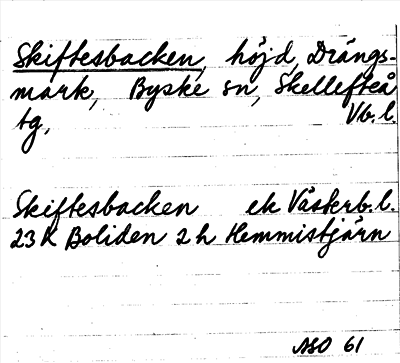 Skiftesbacken, höjd, Drängs-
mark, Byske sn, Skellefteå
tg, Vb. l.
Skiftesbacken ek Västerb. l.
23 K Boliden 2 h Hemmistjärn
61